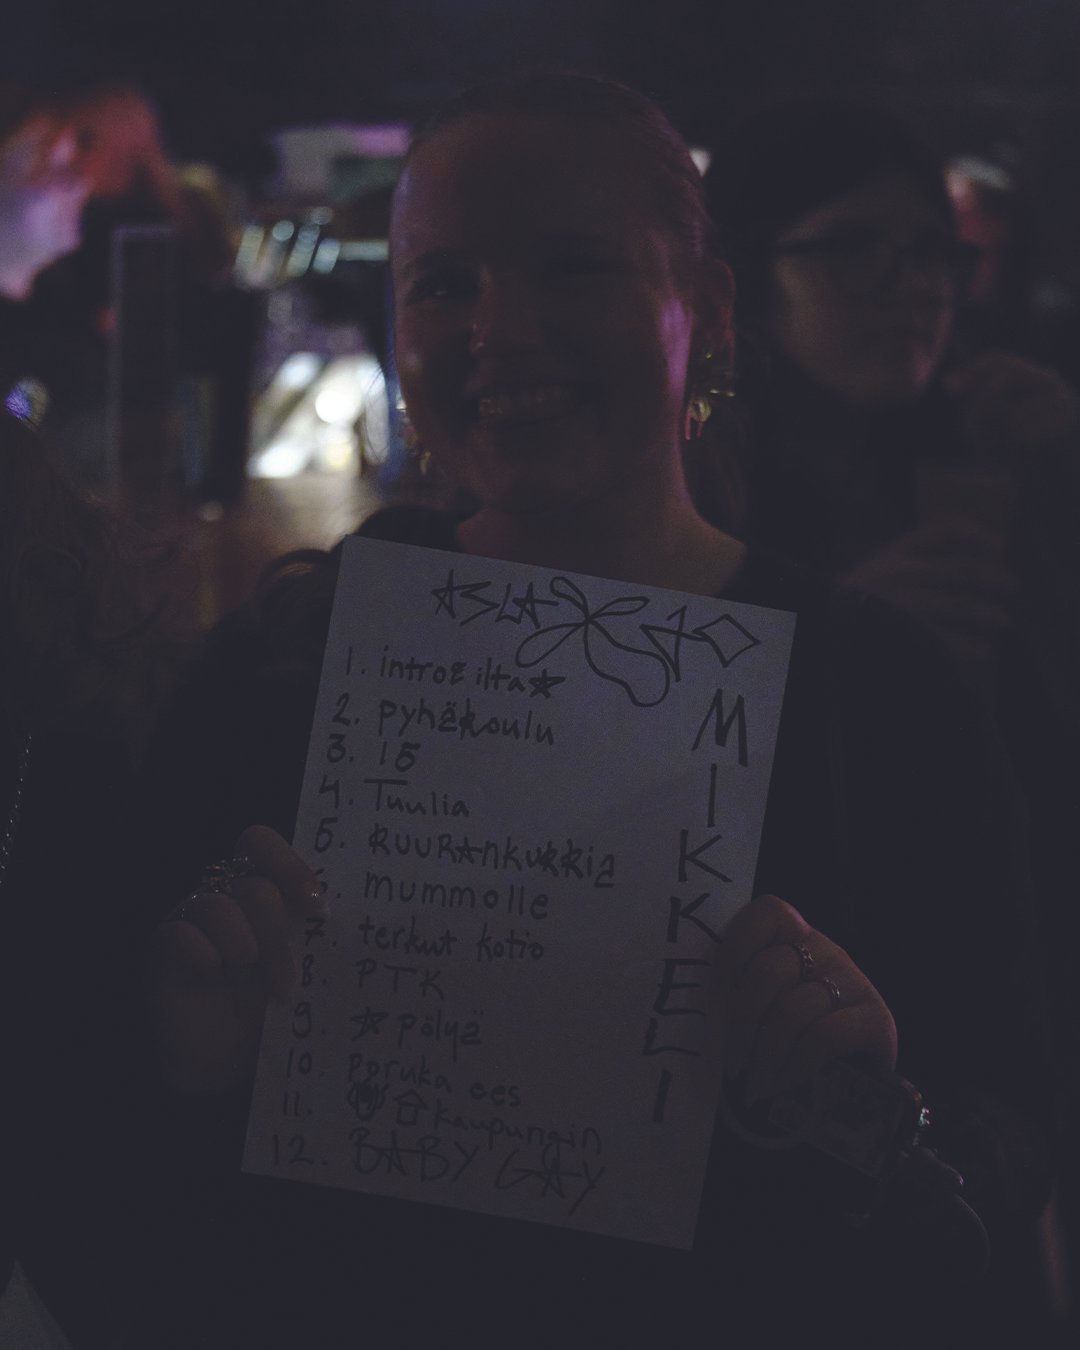 ASLAK JO
MIKKELI
1. intro & ilta
2. pyhäkoulu
3. 15
4. Tuulia
5. KUURANKUKKIA
6. mummolle
7. terkut kotio
8. PTK
9. pölyä
10. poruka oes
11. kaupungin
12. BABY GAY